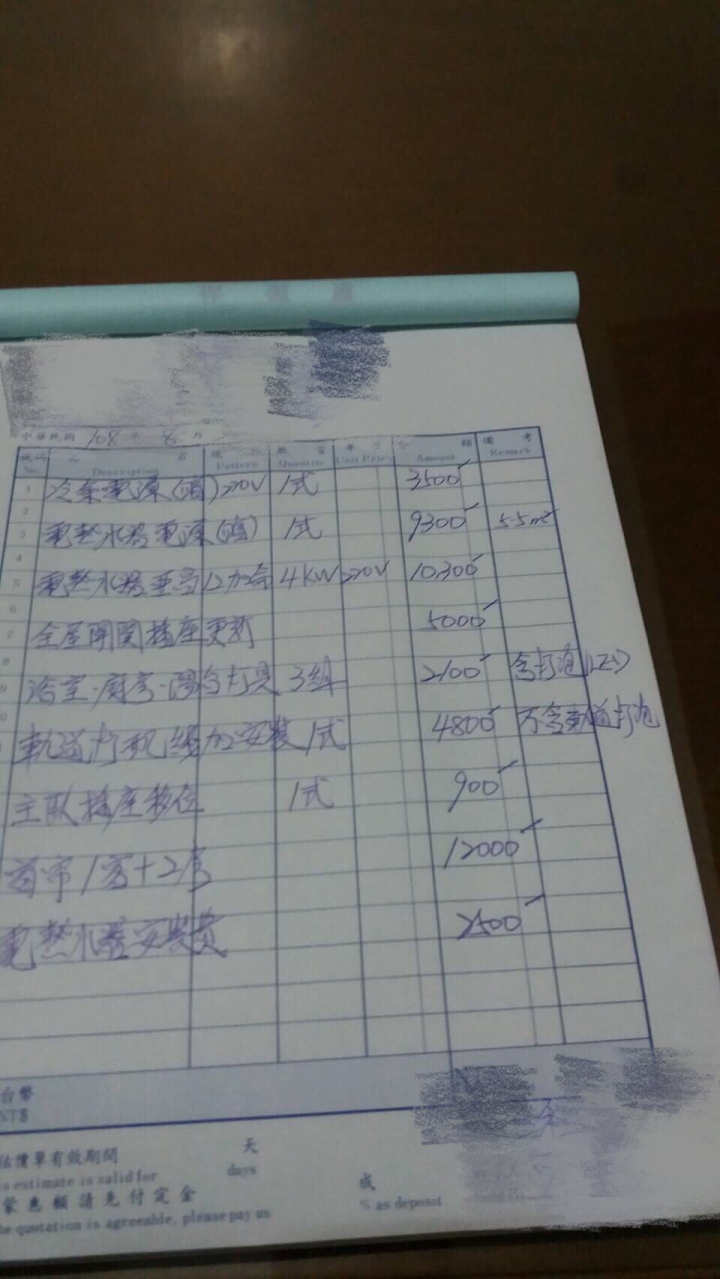 估價單
中華民國 108 年 8 月
編號 品名 規格 數量 單價 金額 備考
No. Description Pattern Quantity Unit Price Amount Remark
1 冷氣電源(頂)220V 1式 3500
2
3 電熱水器電源 1式 9300 5.5m²
5 電熱水器亞昌12加侖 4KW 220V 10,300
6
7 全屋開關插座更新 5000
8 浴室.廚房.陽台灯具 3組 2100 含灯泡
軌道灯配線加安裝 1式 4800 不含軌道灯泡
主臥插座移位 1式 900
窗帘1客+2房 12000
電熱水器安裝費 2500
台幣
NT$
估價單有效期間 天
s estimate is valid for days
蒙惠顧請先付定金 或
he quotation is agreeable, please pay us % as deposit